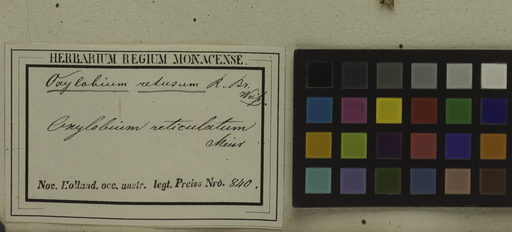 HERBARIUM REGIUM MONACENSE.
Oxylobium retusum R. Br.
Oxylobium reticulatum
Meisn
Nov. Holland. occ. austr. legt. Preiss Nro. 840.